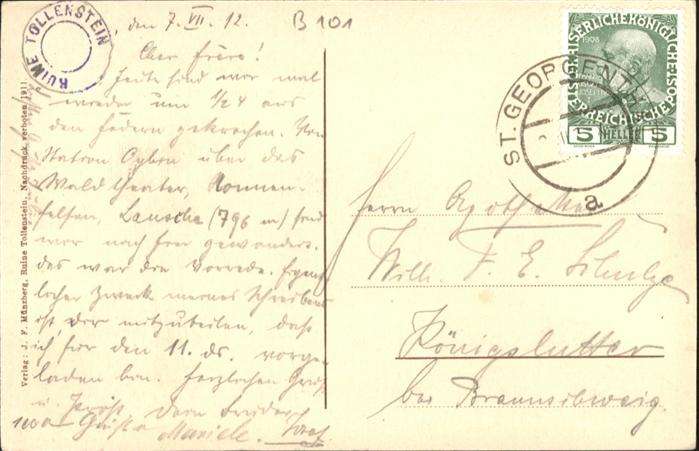 RUINE TOLLENSTEIN
, den 7. VII. 12.
B 101
Cher frère!
Heute sind wir mal
wieder um 1/2 4 aus
den Federn gekrochen. Von
Station Oybin über das
Wald theater, Nonnen-
felsen, Lausche (796 m) sind
wir nach hier gewandert.
das war die Vorrede.
licher Zweck meines Schreibens
ist Dir mitzuteilen, daß
ich für den 11. ds. vorge-
laden bin. Herzlichen Gruß
u. Prosit. Dein Bruder
1000 Grüße Mariele.
Verlag: J. F. Münzberg, Ruine Tollenstein. Nachdruck verboten 1911.
KAISERLICHE KÖNIGLICHE
1908
ÖSTERREICHISCHE POST
5 HELLER 5
ST. GEORGENTHAL
a
Herrn Apotheker
Willi. F. E.
Königslutter
bei Braunschweig.